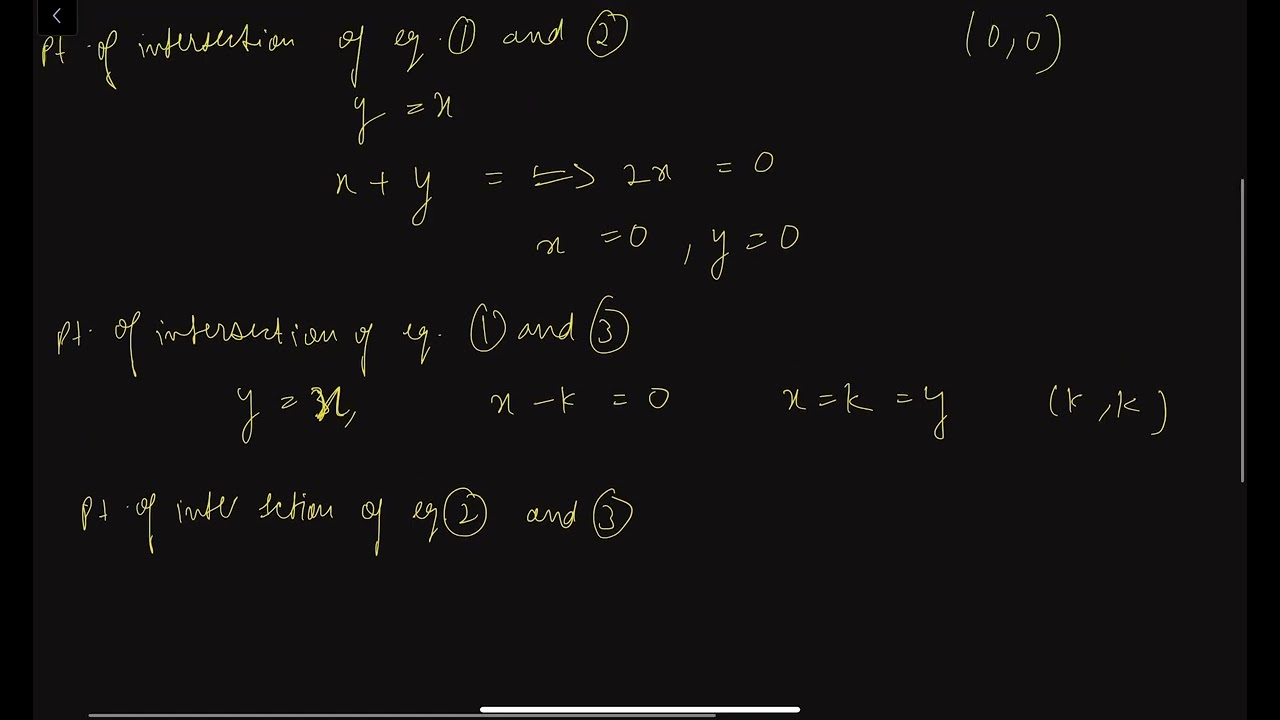 Pt. of intersection of eq. ① and ② (0,0)
y = x
x + y = => 2x = 0
x = 0 , y = 0
Pt. of intersection of eq. ① and ③
y = x, x - k = 0 x = k = y (k , k)
Pt. of inter section of eq ② and ③